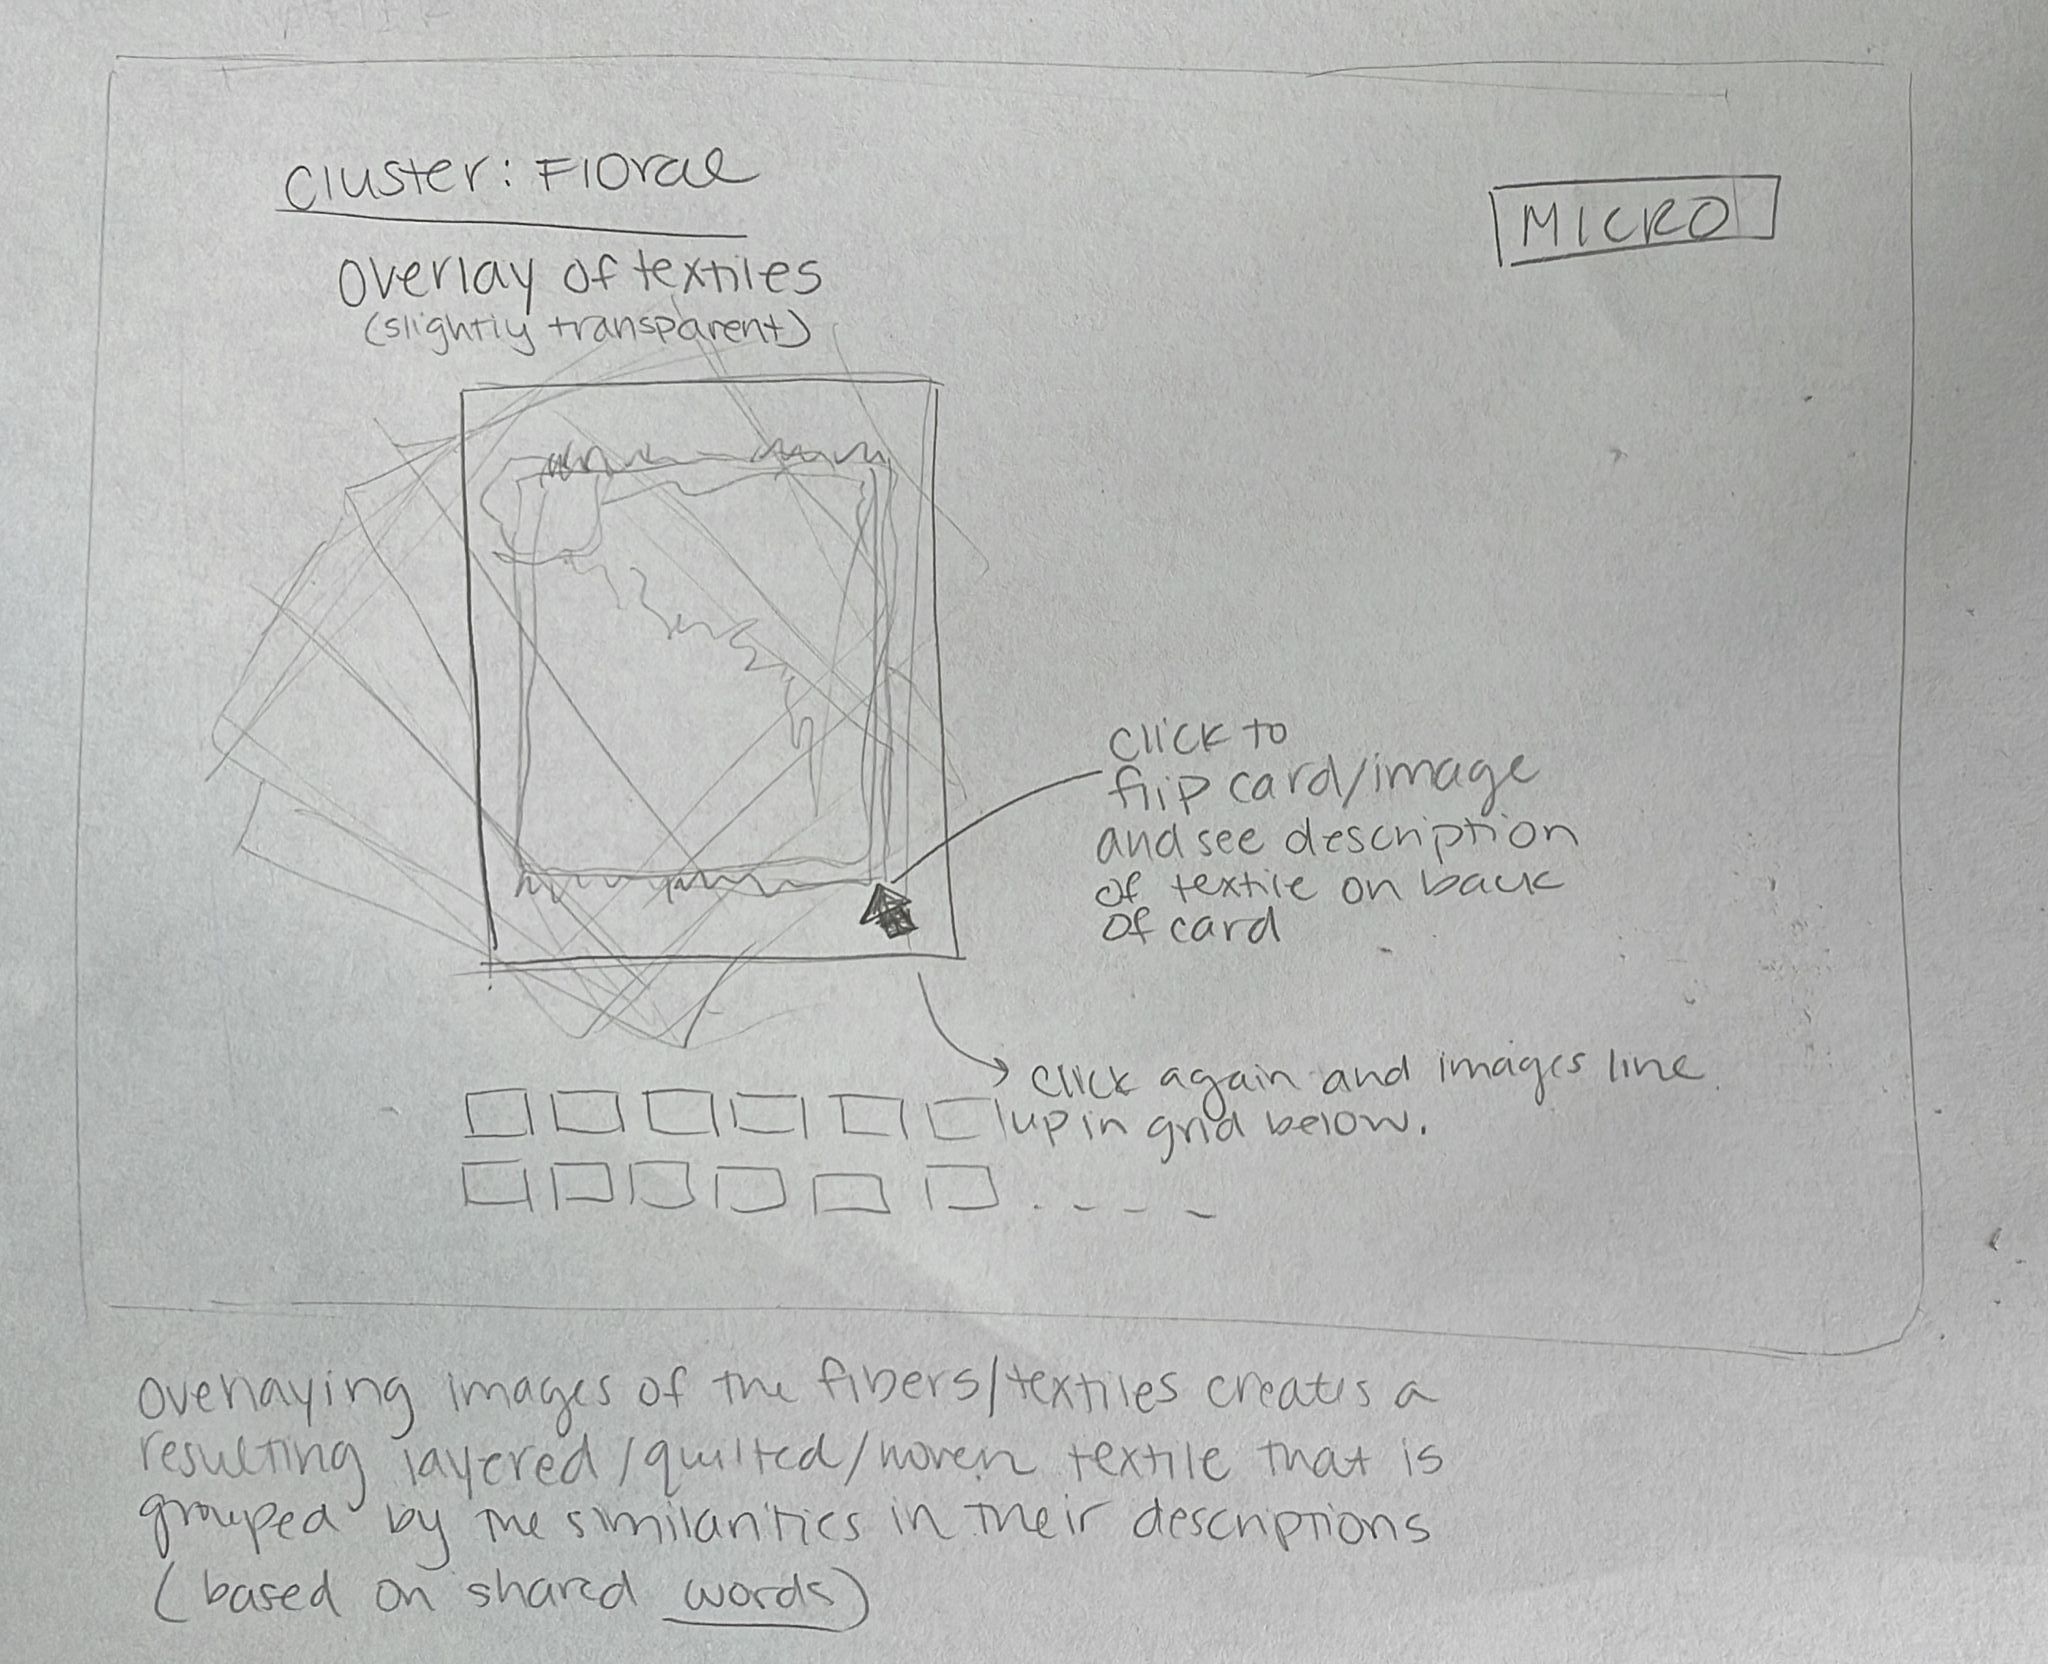 Cluster: Floral
MICRO
overlay of textiles
(slightly transparent)
click to
flip card/image
and see description
of textile on back
of card
click again and images line
up in grid below.
overlaying images of the fibers/textiles creates a
resulting layered/quilted/woven textile that is
grouped by the similarities in their descriptions
(based on shared words)